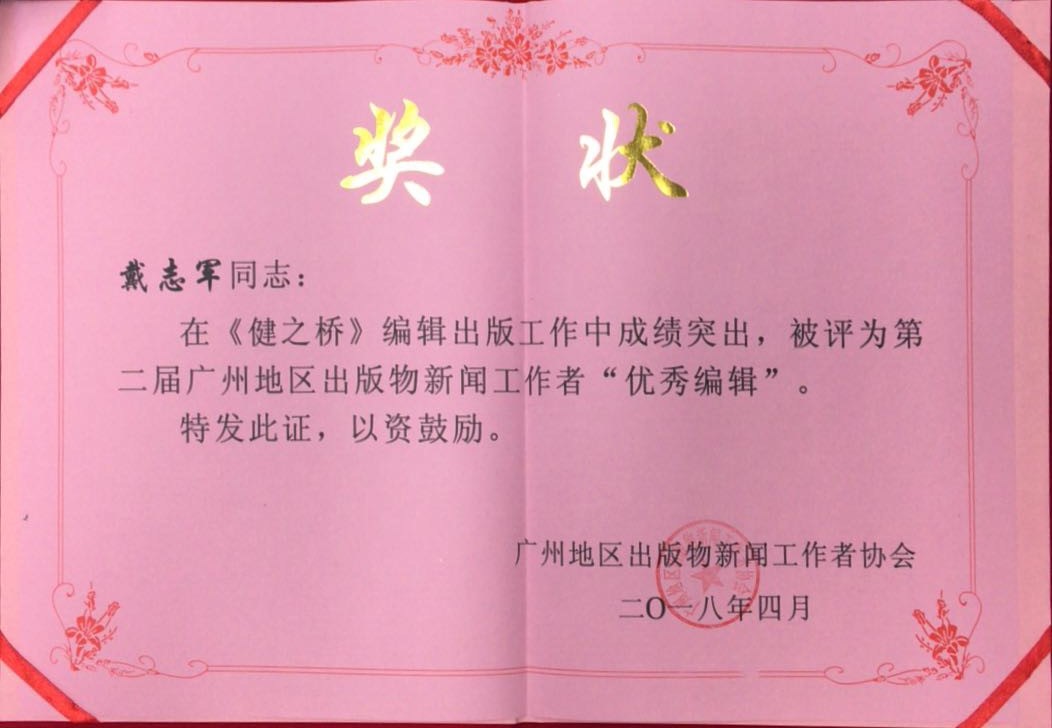 奖状
戴志军同志：
在《健之桥》编辑出版工作中成绩突出，被评为第
二届广州地区出版物新闻工作者“优秀编辑”。
特发此证，以资鼓励。
广州地区出版物新闻工作者协会
二O一八年四月